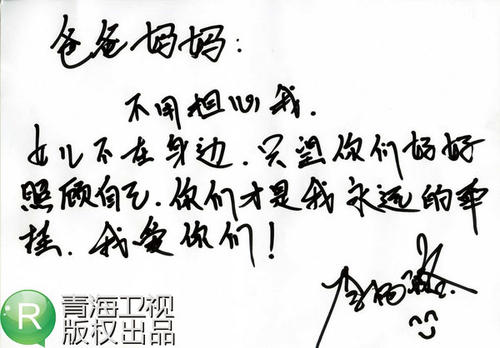 爸爸妈妈：
不用担心我.
女儿不在身边.只望你们好好
照顾自己.你们才是我永远的牵
挂.我爱你们！
R
青海卫视
版权出品